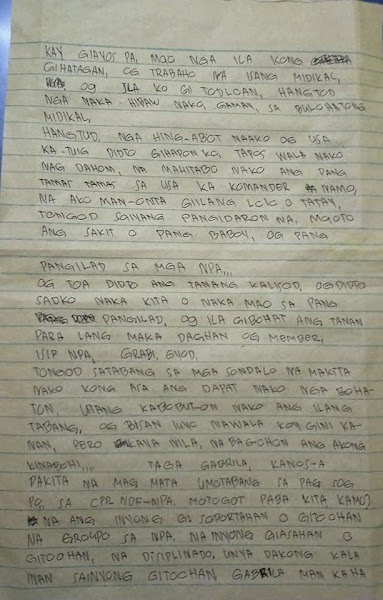 KAY GIAYOS PA, MAO NGA ILA KONG
GIHATAGAN, OG TRABAHO NA ISANG MIDIKAL,
OG ILA KO GI TODLOAN, HANGTOD
NGA NAKA HIBAW NAKO, GAMAY, SA BULOHATONG
MIDIKAL,
HANGTUD, NGA HING-ABOT NAAKO OG USA
KA-TUIG DIDTO GIHAPON KO, TAPOS WALA NAKO
NAG DAHOM, NA MAHITABO NAKO ANG PANG
SA USA KA KOMANDER NAMO,
NA AKO MAN-ONTA GIILANG LOLO O TATAY,
TONGOD SAIYANG PANGIDARON NA, MAOTO
ANG SAKIT O PANG BABOY, OG PANG
PANGILAD SA MGA NPA,,,
OG TOA DIDTO ANG TANANG KALISOD, OG DIDTO
SADKO NAKA KITA O NAKA MAO SA PANG
PANGILAD, OG ILA GIBOHAT ANG TANAN
PARA LANG MAKA DAGHAN OG MEMBER,
ISIP NPA, GRABI, GYOD.
TONGOD SATABANG SA MGA SONDALO NA MAKITA
NAKO KONG ASA ANG DAPAT NAKO NGA BOHA-
TON, UTANG KABOBUT-ON NAKO ANG ILANG
TABANG, OG BISAN UNO NAWALA KON GINI KA-
NAN, PERO KAYA NILA, NA BAGOHON ANG AKONG
KINABOHI,,,, TAGA GABRILA, KANOS-A
PAKITA NA MAG MATA UMOTABANG SA PAG SOG
PO, SA CPR NDF-NPA. MOTOGOT PABA KITA KAMO?
NA ANG INYONG GI SOPORTAHAN O GITOOHAN
NA GROUPO SA NPA, NA INYONG GIASAHAN O
GITOOHAN, NA DISIPLINADO, UNYA DAKONG KALA
INAN SAINYONG GITOOHAN, GABRILA MAN KAHA